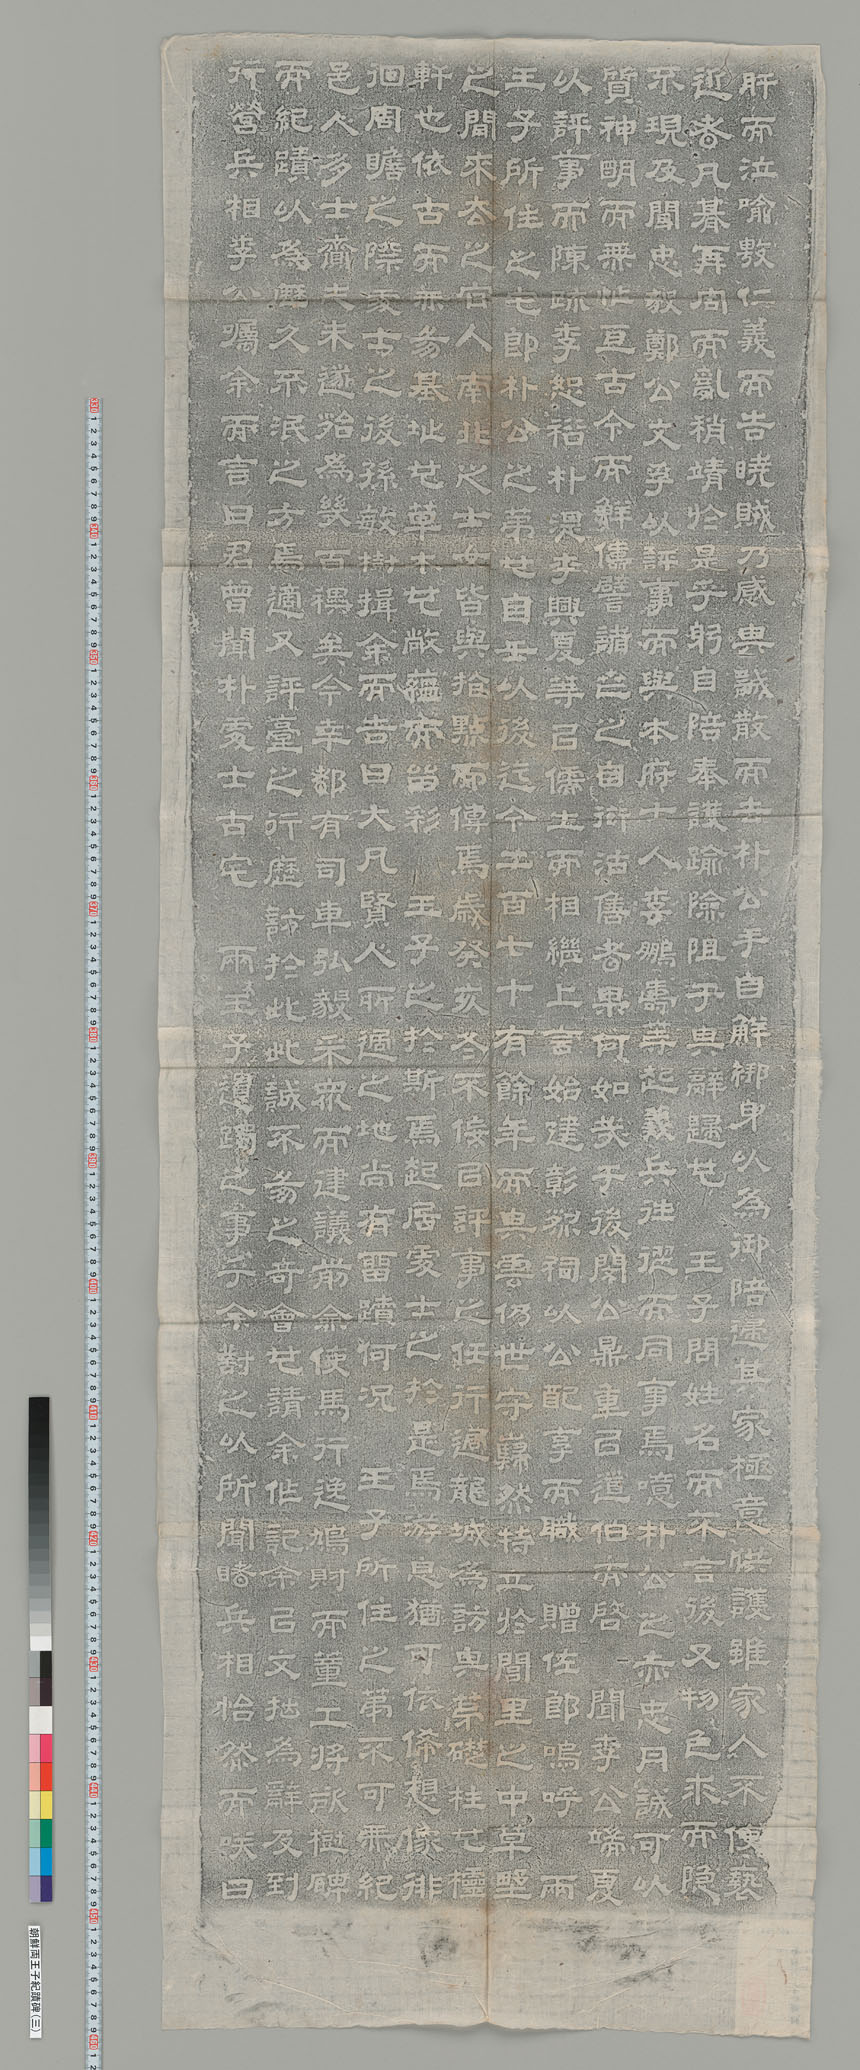 肝而泣喩敷仁義而告曉賊乃感其誠散而去朴公手自解縛身以爲御陪還其家極意供護雖家人不使褻
近者凡朞再周而亂稍靖於是乎躬自陪奉護踰險阻于其辭還也　王子問姓名而不言後又物色求而隐
不現及聞忠毅鄭公文孚以評事而與本府士人李鵬壽等起義兵往從而同事焉噫朴公之赤忠丹誠可以
質神明而無怍亘古今而鮮儔譬諸世之自衒沽售者果何如哉于後閔公鼎重以道伯亦啓　聞李公端夏
以評事而陳疏李恕裕朴混李興夏等以儒生而相繼上言始建彰烈祠以公配享而職　贈佐郎嗚呼　兩
王子所住之宅即朴公之第也自是以後迄今二百七十有餘年而其雲仍世守巋然特立於閭里之中草野
之間來去之官人南北之士女皆與指點而傳焉歲癸亥冬不佞以評事之任行過龍城爲訪其遺礎柱也欞
軒也依古而無易基址也草木也敞麗而留彩　王子之於斯焉起居處士之於是焉游息猶可依俙想像徘
徊周瞻之際處士之後孫鼓樹揖余而告曰大凡賢人所過之地尚有留蹟何况　王子所住之第不可無紀
邑人多士齊志未遂殆爲幾百禩矣今幸都有司車弘毅采衆而建議前余使馬行逸鳩財而董工將欲樹碑
而紀蹟以爲歷久不泯之方焉適又評臺之行歷訪於此此誠不易之奇會也請余作記余以文拙爲辭及到
行營兵相李公囑余而言曰君曾聞朴處士古宅　兩王子遺躅之事乎余對之以所聞睹兵相怡然而咲曰
朝鮮両王子紀蹟碑（三）